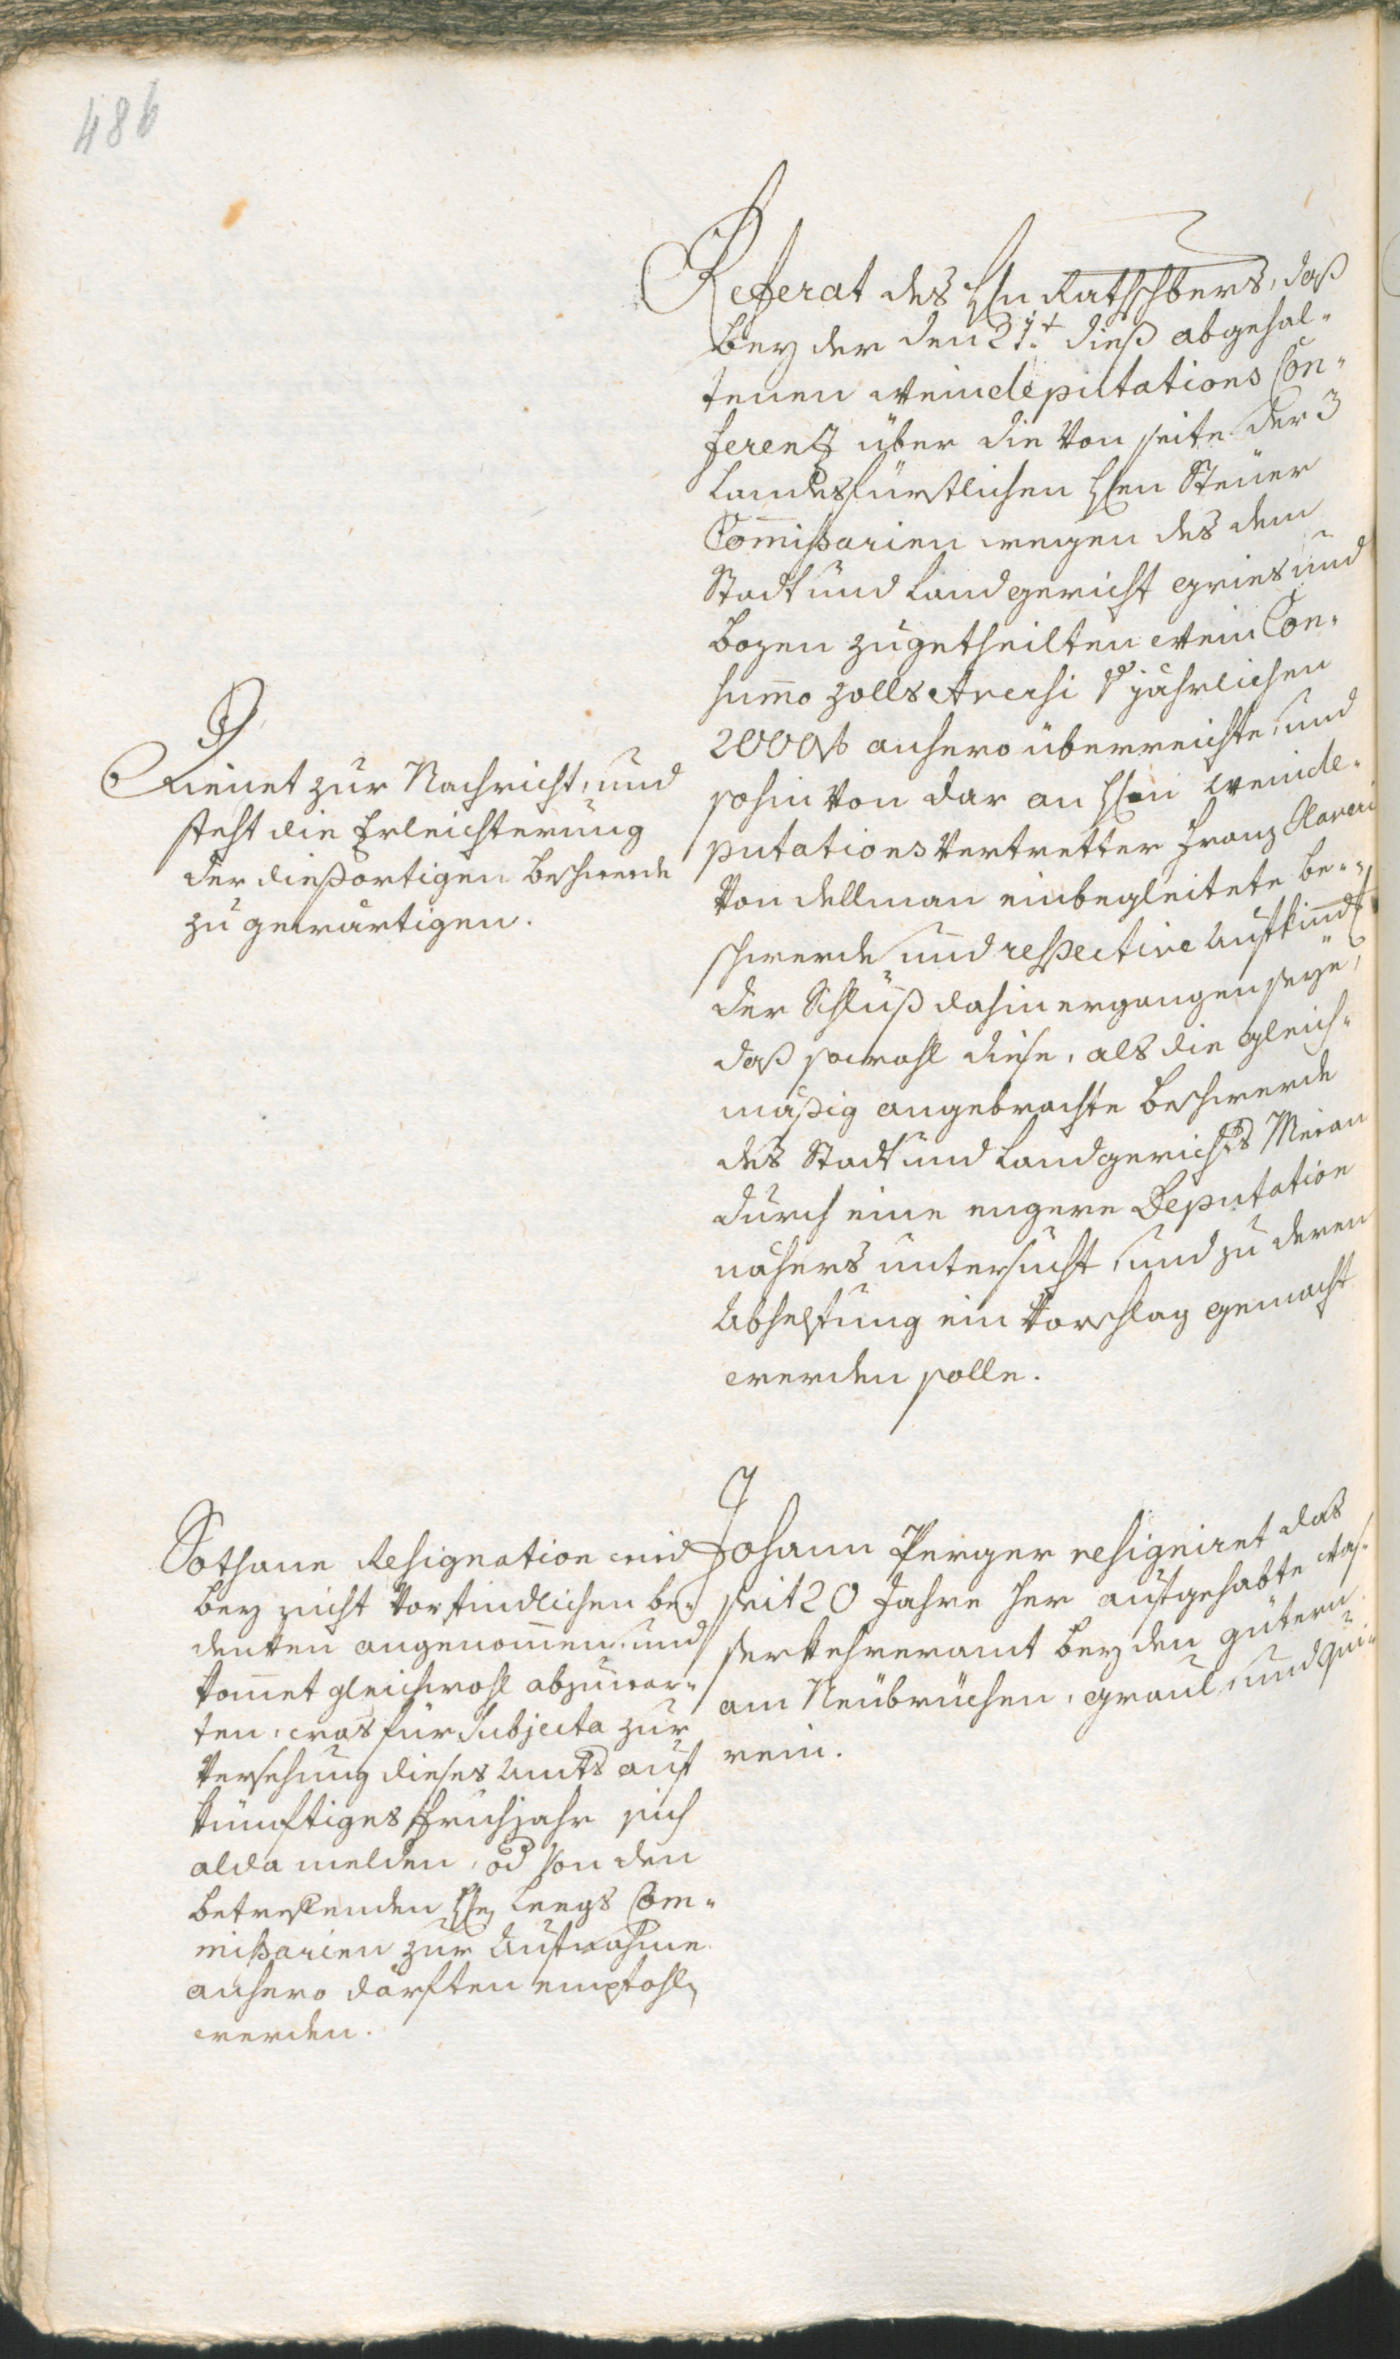 486
Referat des Hn Rathschbers, daß
bey der den 21.t dieß abgehal-
tenen weindeputations Con-
ferenz über die von seite der 3
Landesfürstlichen Hen Steüer
Commissarien wegen des dem
Stadt und Landgericht gries und
bozen zugetheilten wein Con-
summo zolls Aversi pr jährlichen
2000 f anhero überreichte, und
sohin von dar an Hen weinde-
putations Vertretter Franz Xaveri
von dellman einbegleitete be-
schwerde und respective Auskunft
der Schluß dahin ergangen seye,
daß sowohl diese, als die gleich-
mäßig angebrachte beschwerde
des Stadt und Landgerichts Meran
durch eine engere Deputation
nähers untersucht, und zu deren
Abhelfung ein Vorschlag gemacht
werden solle.
Dienet zur Nachricht, und
steht die Erleichterung
der dießortigen beschwerde
zu gewärtigen.
Johann Perger resigniret das
seit 20 Jahre her aufgehabte was-
serkehreramt bey den gütern
am Neübrüchen, graul, und Qui-
rein.
Sothane Resignation wird
bey nicht vorfindlichen be-
denken angenommen, und
kommet gleichwohl abzuwar-
ten, was für Subjecta zur
Versehung dieses Amts auf
künftiges Frühjahr sich
alda melden, od von den
betreffenden Hen Leegs Com-
missarien zur Aufnahme
anhero därften empfohln
werden.